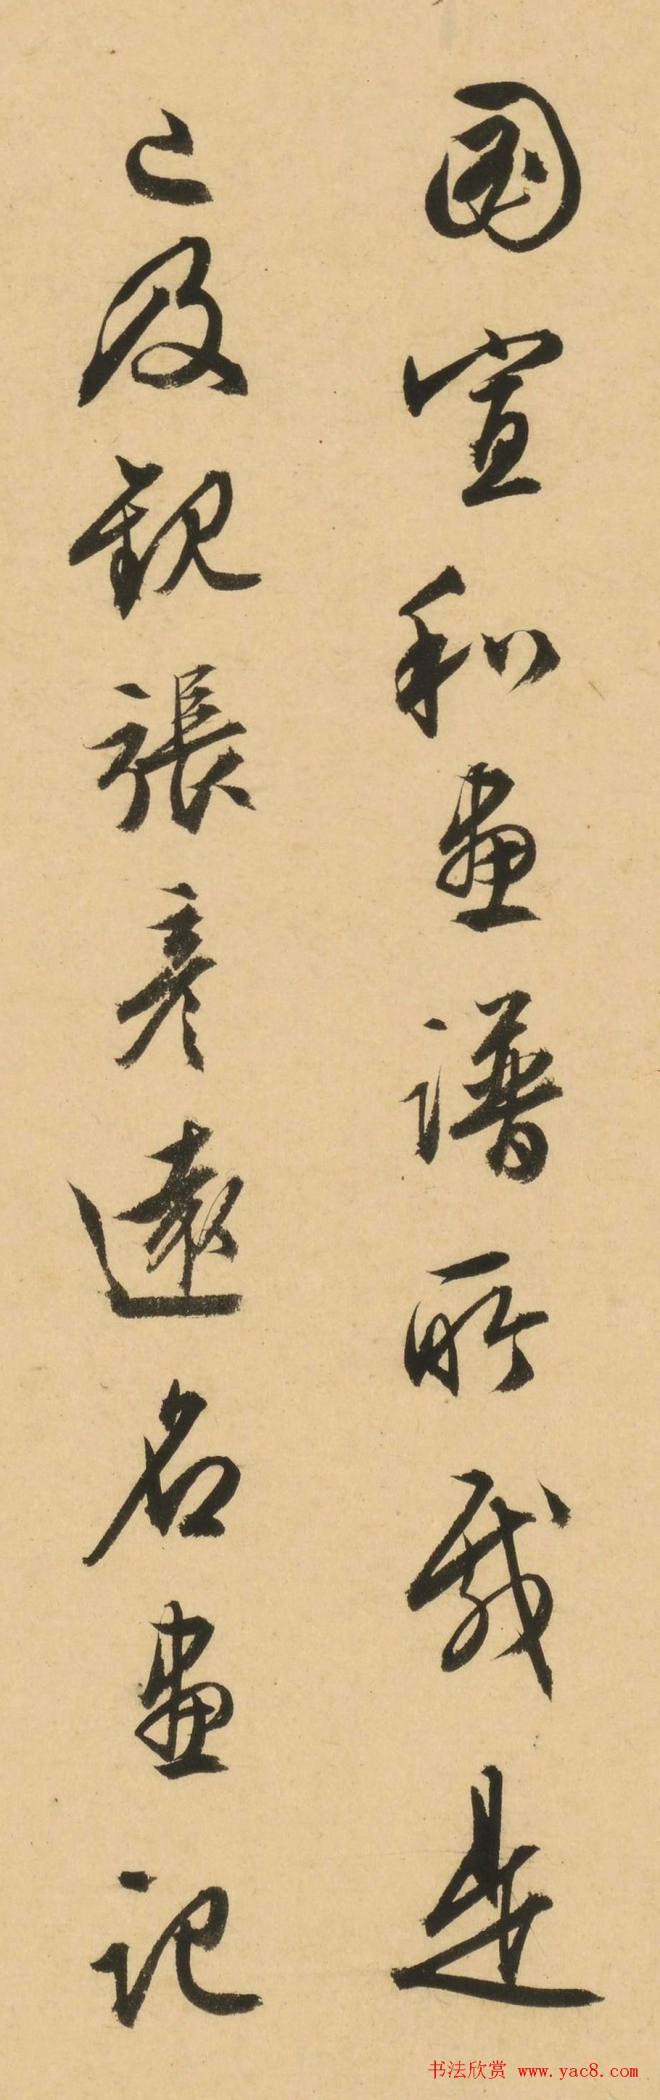 圖宣和畫譜所載是
已及觀張彥遠名畫記
书法欣赏 www.yac8.com